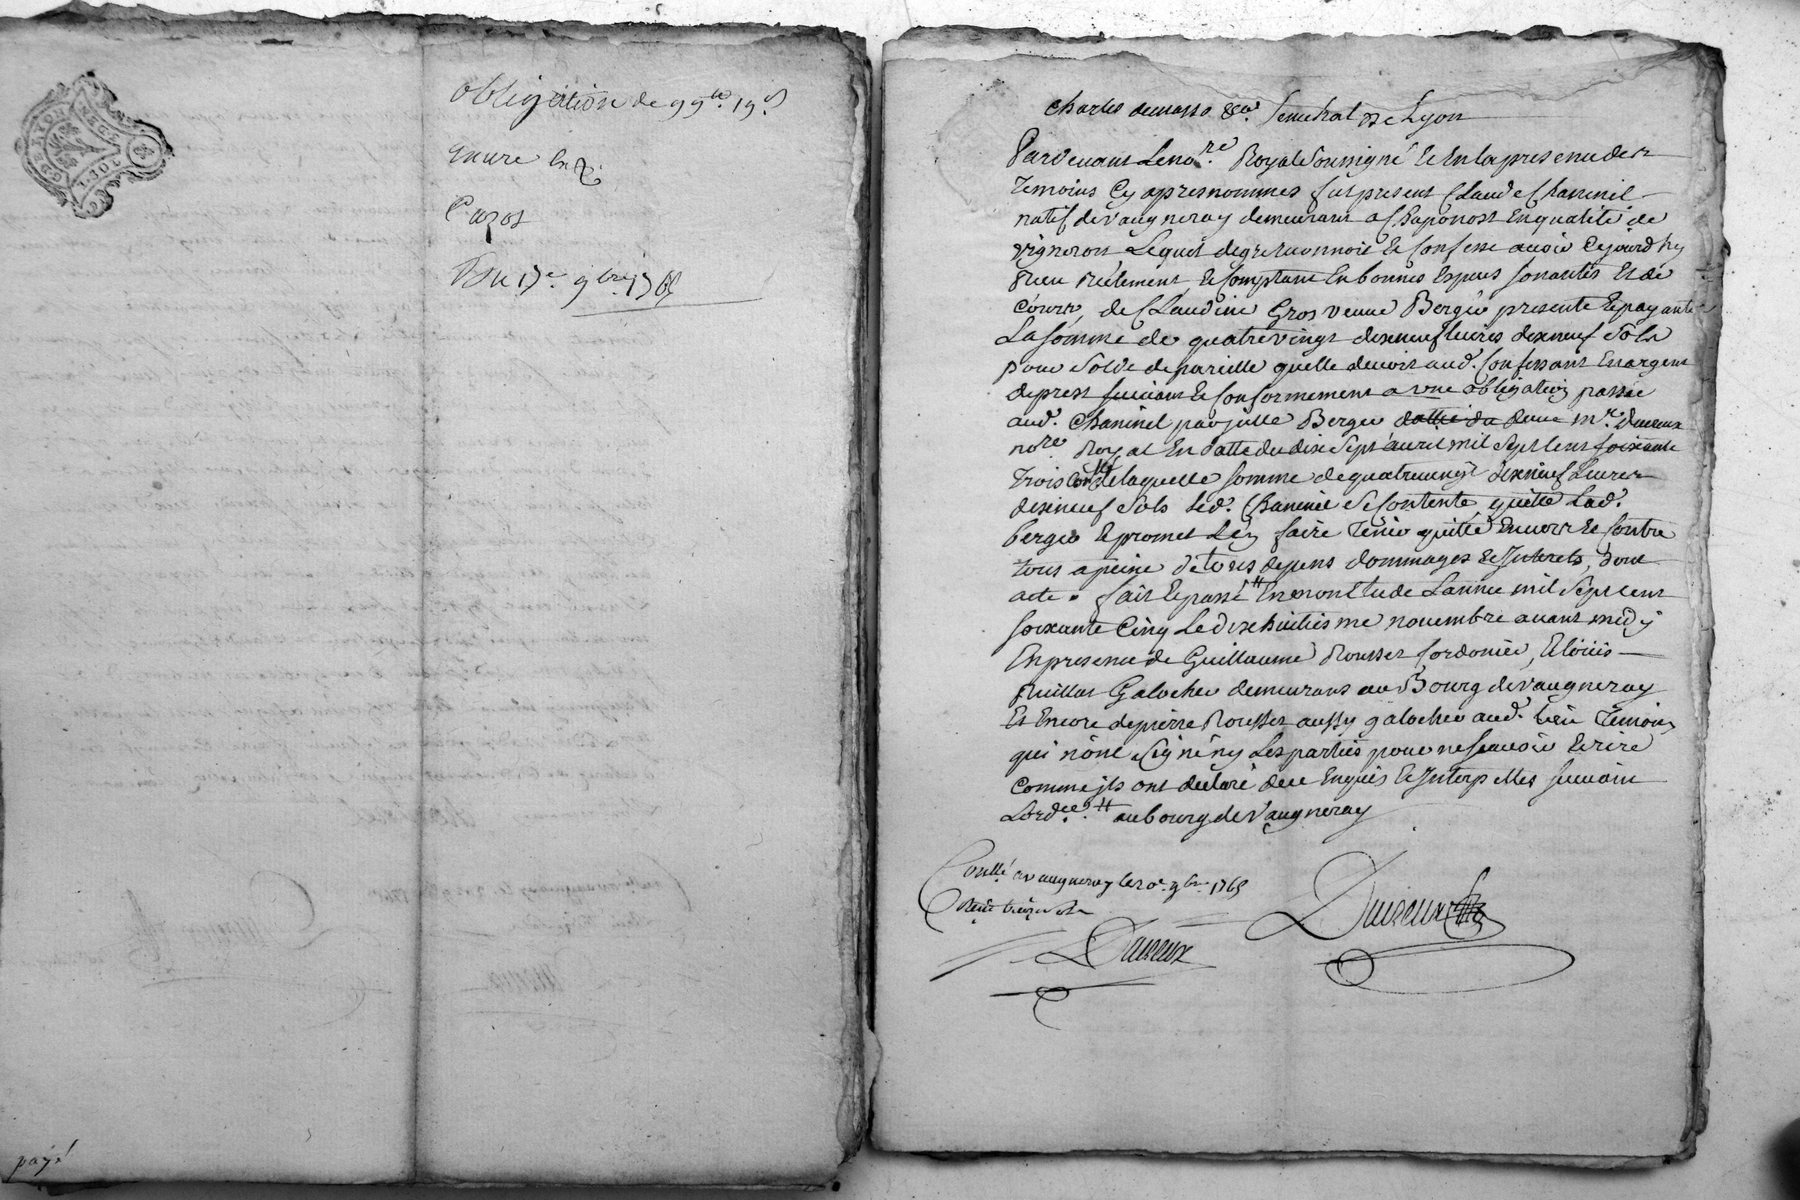 GEN. DE LYON
2. SOLS
obligation de 99tt. 19s
Encre
Du 17e. 9bre 1765
payé
Charles demasso &ca. Senechal de Lyon
Pardevant Le no.re Royal Soussigné et En la presence des
temoins Cy apres nommés fut present Claude Chaninel
natif de Vaugneray demeurant a Chaponost En qualité de
Vigneron Lequel de gré reconnoit et Confesse avoir Cejourd'huy
Receu réelement et Comptant En bonnes Especes sonantes et de
Cours, de Claudine Gros veuve Berger presente et payante
La somme de quatrevingt dixneuf livres dixneuf Sols
pour Solde de pareille quelle devoit aud. Confessant En argent
de prest suivant et Conformement a une obligation passée
aud. Chaninel par jelle Berger dattée du deux m.re Duvieux
no.re Royal En datte du dix Sept avril mil Sept Cent soixante
trois de laquelle somme de quatrevingt dixneuf Livres
dixneuf Sols led. Chaninel Se Contente, quitte Lad.
berger et promet L'en faire tenir quitte Envers et Contre
tous a peine de tous depens dommages et Interets, dont
acte. fait et passé # En mon Etude L'année mil Sept cent
soixante Cinq Le dix huitieme novembre avant midy
En presence de Guillaume Rousset Cordonier, et Loüis
Galocher demeurans au Bourg de Vaugneray
Et Encore de pierre Rousset aussy galocher aud. Lieu temoins
qui n'ont Signé ny Les parties pour ne scavoir Ecrire
Comme ils ont déclaré de ce Enquis et Interpellés suivant
L'ord.ce. # au bourg de Vaugneray
Conllé a vaugneray le 20e. 9bre 1765
Receu treize sols